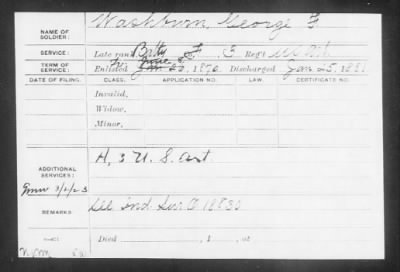 NAME OF SOLDIER: Washburn, George F
SERVICE: Late rank Batty F, 3 Reg't U.S. Art.
TERM OF SERVICE: Enlisted Jan 26, 1876, Discharged Jan 25, 1881
DATE OF FILING. CLASS. APPLICATION NO. LAW. CERTIFICATE NO.
Invalid,
Widow,
Minor,
ADDITIONAL SERVICES: H, 3 U. S. Art.
3/2/23
REMARKS: Ind Sur O 12830
Died , 1 , at